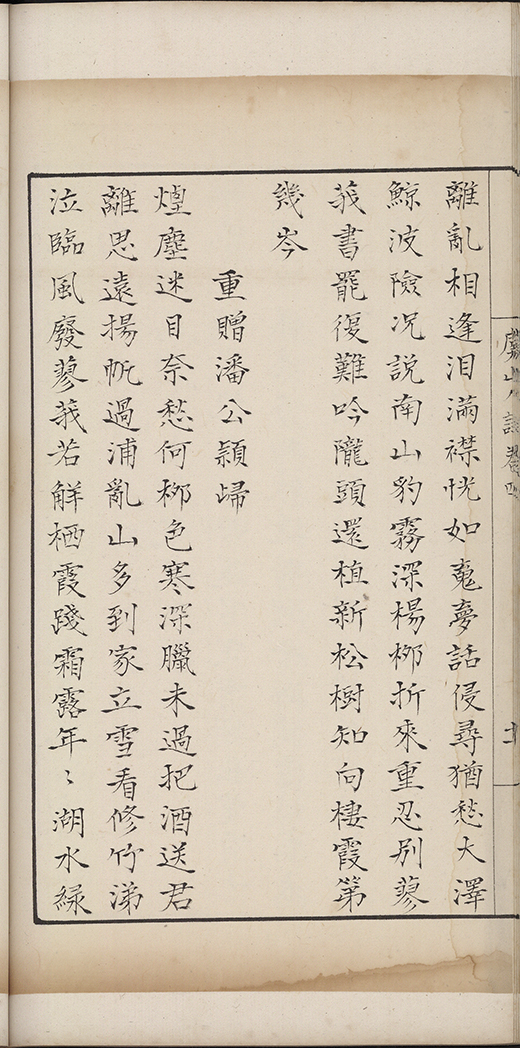 離亂相逢泪滿襟恍如䰟夢話侵尋猶愁大澤
鯨波險况說南山豹霧深楊栁折來重忍别蓼
莪書罷復難吟隴頭還植新松樹知向棲霞第
幾岑
重贈潘公穎歸
煌塵迷目奈愁何栁色寒深臘未過把酒送君
離思遠揚帆過浦亂山多到家立雪看修竹涕
泣臨風廢蓼莪若觧栖霞踐霜露年〻湖水緑